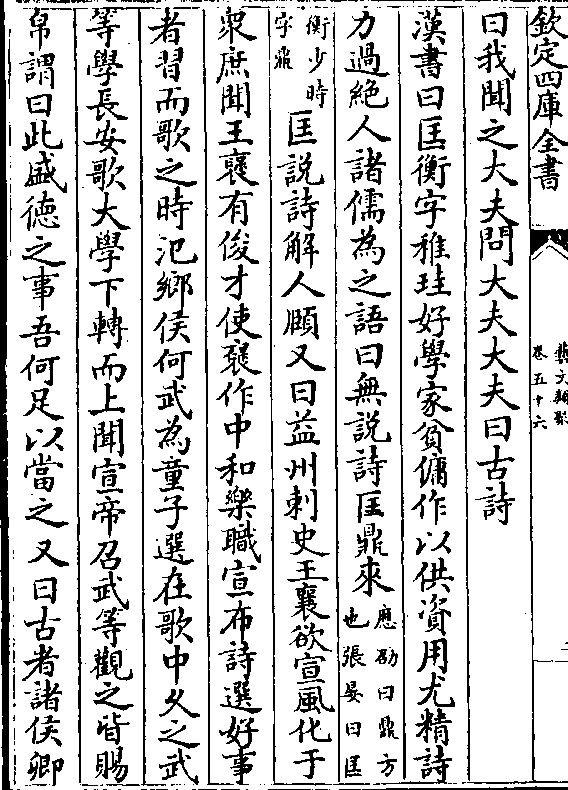 欽定四庫全書
藝文類聚
卷五十六
二
曰我聞之大夫問大夫大夫曰古詩
漢書曰匡衡字稚珪好學家貧傭作以供資用尤精詩
力過絶人諸儒為之語曰無說詩匡鼎來應劭曰鼎方也張晏曰匡
衡少時字鼎匡說詩解人頤又曰益州刺史王襄欲宣風化于
衆庶聞王襃有俊才使襃作中和樂職宣布詩選好事
者習而歌之時氾鄉侯何武為童子選在歌中久之武
等學長安歌大學下轉而上聞宣帝召武等觀之皆賜
帛謂曰此盛德之事吾何足以當之又曰古者諸侯卿